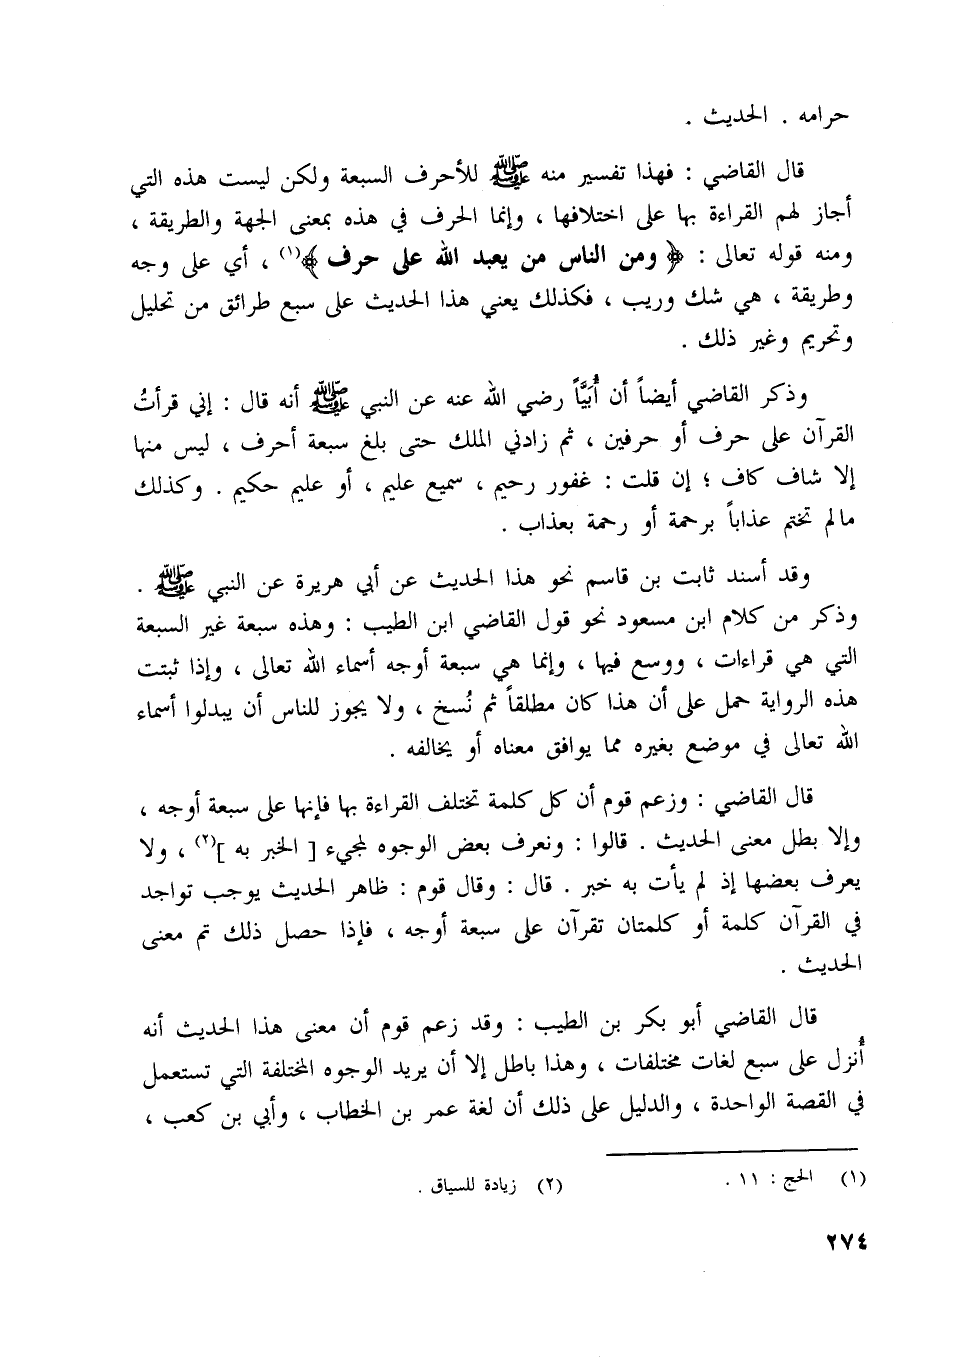 حرامه . الحديث .
قال القاضي : فهذا تفسير منه ﷺ للأحرف السبعة ولكن ليست هذه التي
أجاز لهم القراءة بها على اختلافها ، وإنما الحرف في هذه بمعنى الجهة والطريقة ،
ومنه قوله تعالى : ﴿ ومن الناس من يعبد الله على حرف ﴾(١) ، أي على وجه
وطريقة ، هي شك وريب ، فكذلك يعني هذا الحديث على سبع طرائق من تحليل
وتحريم وغير ذلك .
وذكر القاضي أيضاً أن أُبَيَّاً رضي الله عنه عن النبي ﷺ أنه قال : إني قرأتُ
القرآن على حرف أو حرفين ، ثم زادني الملك حتى بلغ سبعة أحرف ، ليس منها
إلا شاف كاف ؛ إن قلت : غفور رحيم ، سميع عليم ، أو عليم حكيم . وكذلك
مالم تختم عذاباً برحمة أو رحمة بعذاب .
وقد أسند ثابت بن قاسم نحو هذا الحديث عن أبي هريرة عن النبي ﷺ .
وذكر من كلام ابن مسعود نحو قول القاضي ابن الطيب : وهذه سبعة غير السبعة
التي هي قراءات ، ووسع فيها ، وإنما هي سبعة أوجه أسماء الله تعالى ، وإذا ثبتت
هذه الرواية حمل على أن هذا كان مطلقاً ثم نُسخ ، ولا يجوز للناس أن يبدلوا أسماء
الله تعالى في موضع بغيره مما يوافق معناه أو يخالفه .
قال القاضي : وزعم قوم أن كل كلمة تختلف القراءة بها فإنها على سبعة أوجه ،
وإلا بطل معنى الحديث . قالوا : ونعرف بعض الوجوه لمجيء [ الخبر به ](٢) ، ولا
يعرف بعضها إذ لم يأت به خبر . قال : وقال قوم : ظاهر الحديث يوجب تواجد
في القرآن كلمة أو كلمتان تقرآن على سبعة أوجه ، فإذا حصل ذلك تم معنى
الحديث .
قال القاضي أبو بكر بن الطيب : وقد زعم قوم أن معنى هذا الحديث أنه
أُنزل على سبع لغات مختلفات ، وهذا باطل إلا أن يريد الوجوه المختلفة التي تستعمل
في القصة الواحدة ، والدليل على ذلك أن لغة عمر بن الخطاب ، وأبي بن كعب ،
(١) الحج : ١١ .
(٢) زيادة للسياق .
٢٧٤